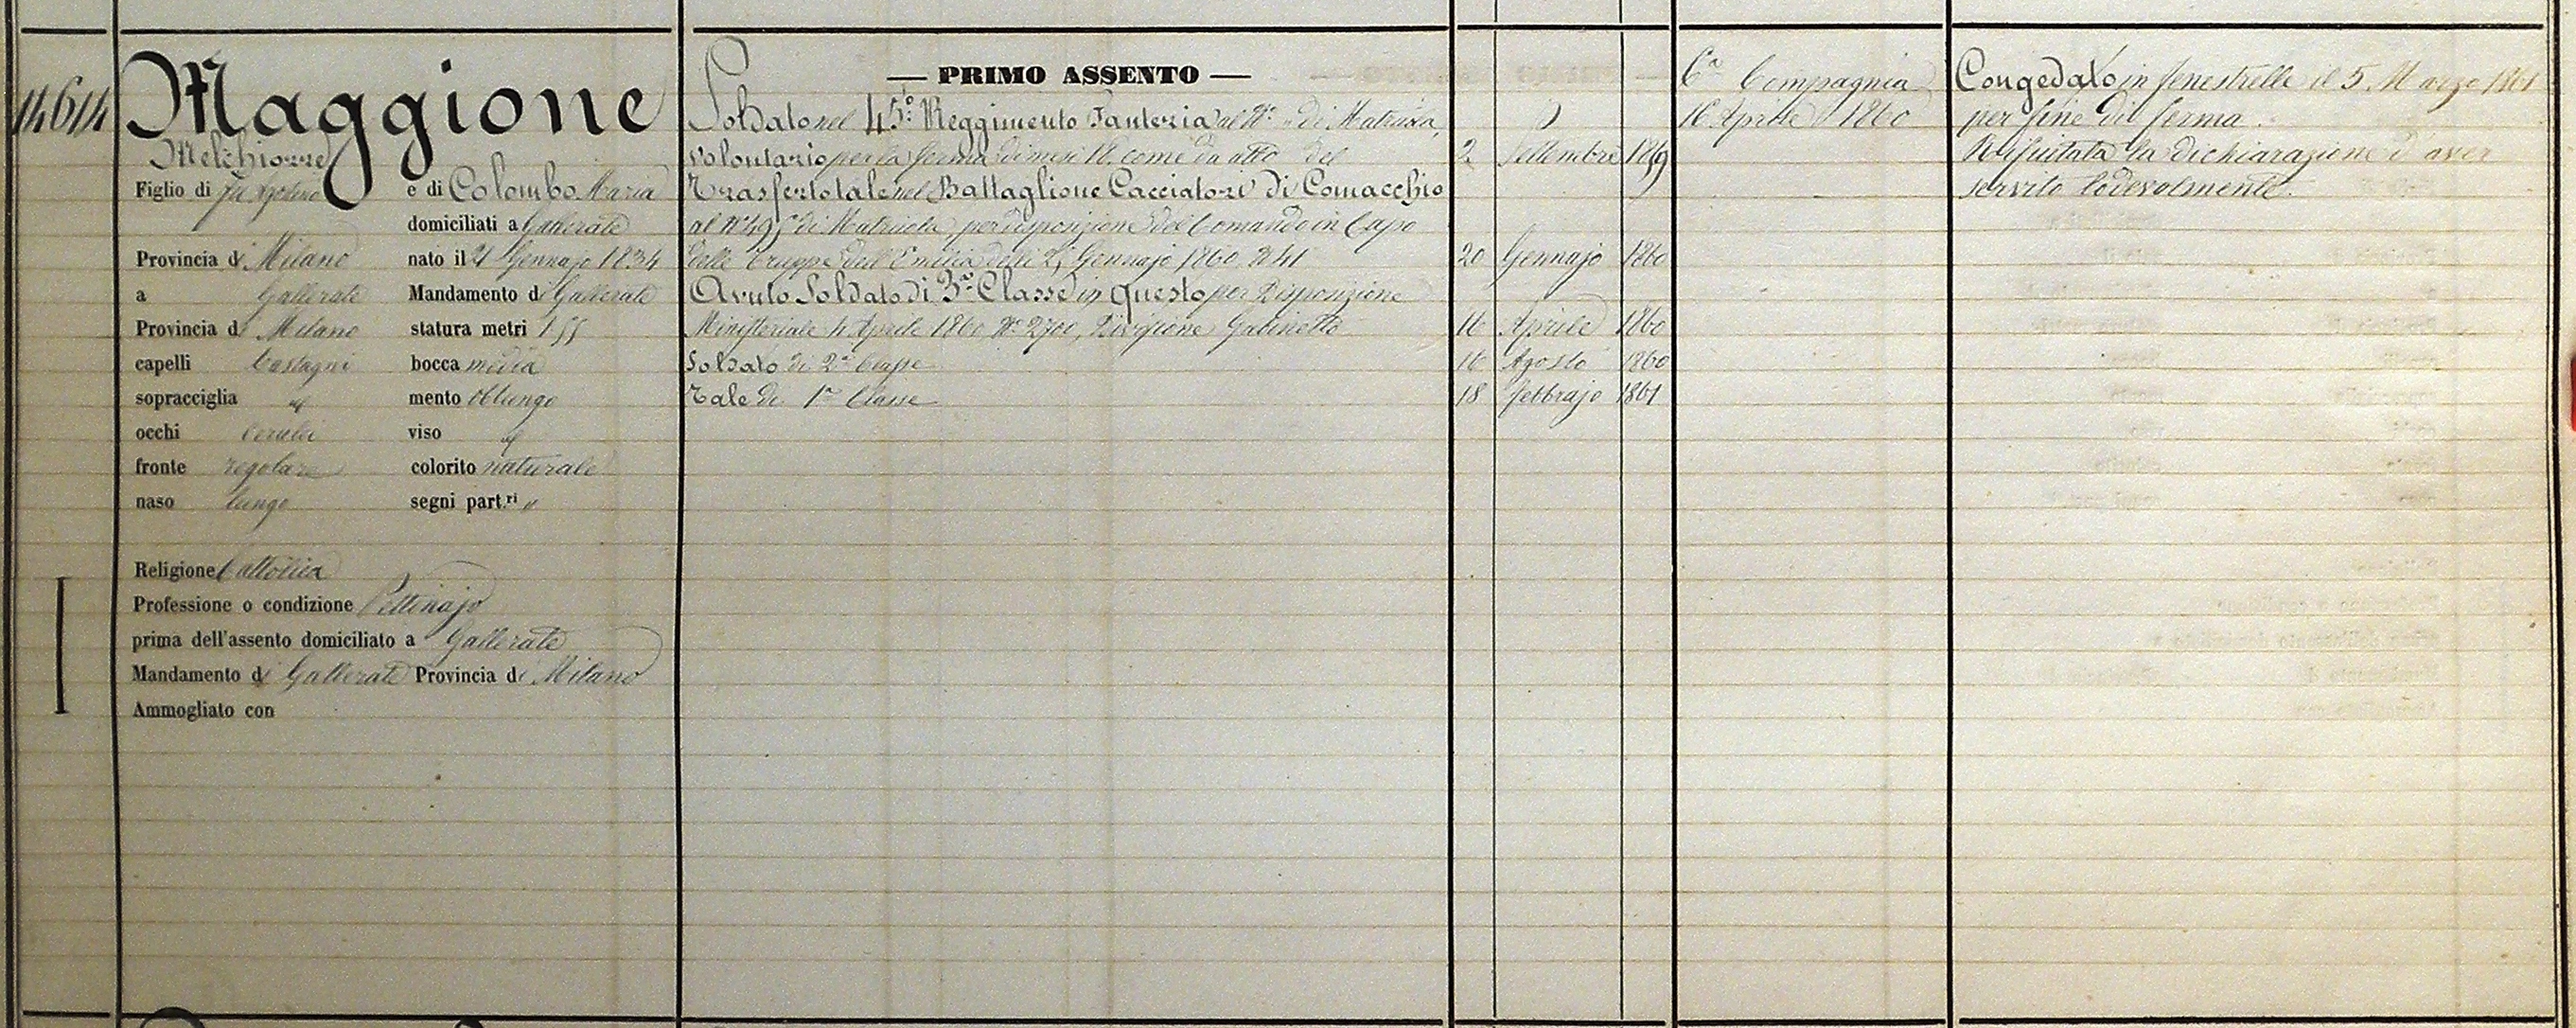 14614
Maggione
Melchiorre
Figlio di fu e di Colombo Maria
domiciliati a Gallerate
Provincia di Milano nato il 21 Gennajo 1834
a Gallerate Mandamento di Gallerate
Provincia di Milano statura metri 1.55
capelli Castagni bocca media
sopracciglia id mento oblungo
occhi Cerulei viso id
fronte regolare colorito naturale
naso lungo segni part.ri "
Religione Cattolica
Professione o condizione Pettinajo
prima dell'assento domiciliato a Gallerate
Mandamento di Gallerate Provincia di Milano
Ammogliato con
— PRIMO ASSENTO —
Soldato nel 45.º Reggimento Fanteria al Nº " di Matricola,
volontario per la ferma di mesi 18. come da atto del 2 Settembre 1859
Trasferto tale nel Battaglione Cacciatori di Comacchio
al Nº 495 di Matricola, per disposizione del Comando in Capo
delle Truppe dell'Emilia delli Gennajo 1860. N 41 20 Gennajo 1860
Avuto Soldato di 3ª Classe in questo per Disposizione
Ministeriale 4 Aprile 1860 Nº 2700, Divisione Gabinetto 16 Aprile 1860
Soldato di 2ª Classe 16 Agosto 1860
Tale di 1ª Classe 18 Febbrajo 1861
6ª Compagnia
16 Aprile 1860
Congedato in Fenestrelle il 5. Marzo 1861
per fine di ferma.
Rifiutata la dichiarazione d'aver
servito lodevolmente.